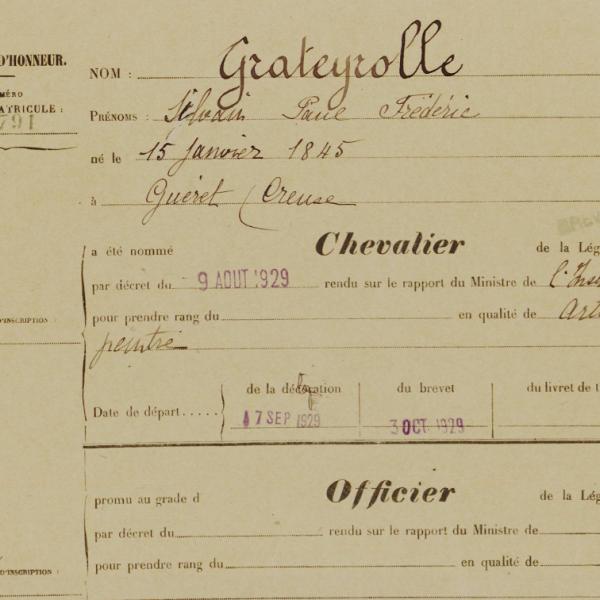 D'HONNEUR.
NUMÉRO
MATRICULE :
791
NOM : Grateyrolle
PRÉNOMS : Sylvain Paul Frédéric
né le 15 janvier 1845
à Guéret (Creuse
a été nommé Chevalier de la Lég
par décret du 9 AOUT 1929 rendu sur le rapport du Ministre de l'Ins
D'INSCRIPTION :
pour prendre rang du en qualité de Art
peintre
de la décoration du brevet du livret de t
Date de départ.....
17 SEP 1929 3 OCT. 1929
promu au grade d Officier de la Lég
par décret du rendu sur le rapport du Ministre de
pour prendre rang du en qualité de
D'INSCRIPTION :